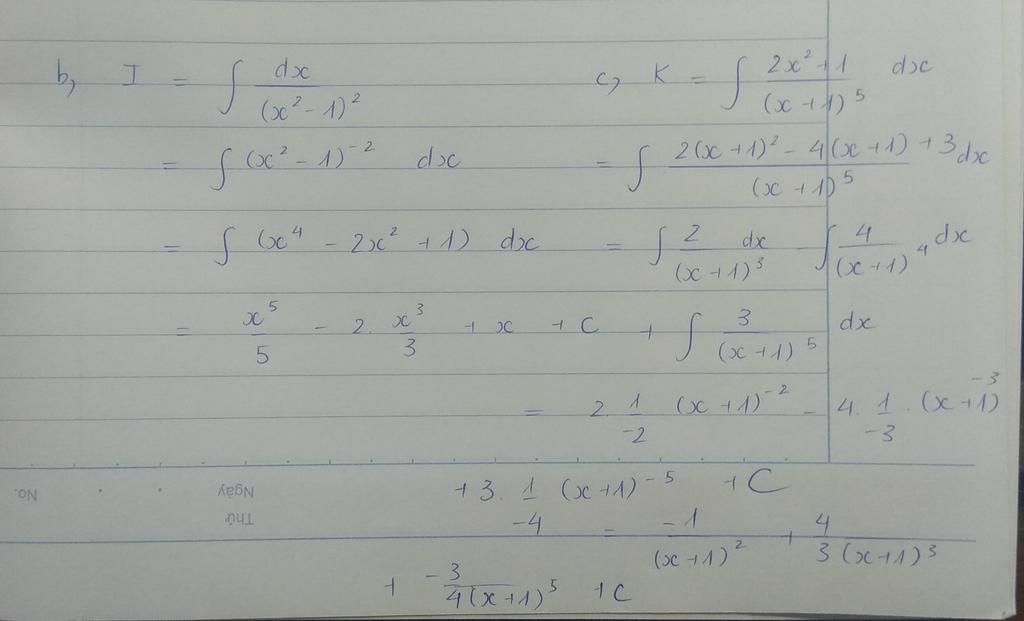 b, I = ∫ dx / (x² - 1)²
= ∫ (x² - 1)⁻² dx
= ∫ (x⁴ - 2x² + 1) dx
= x⁵/5 - 2. x³/3 + x + C
c, K = ∫ (2x² + 1) / (x + 1)⁵ dx
= ∫ (2(x + 1)² - 4(x + 1) + 3) / (x + 1)⁵ dx
= ∫ 2 / (x + 1)³ dx - ∫ 4 / (x + 1)⁴ dx
+ ∫ 3 / (x + 1)⁵ dx
= 2. 1/-2 (x + 1)⁻² - 4. 1/-3 . (x + 1)⁻³
+ 3. 1/-4 (x + 1)⁻⁵ + C
= -1 / (x + 1)² + 4 / 3(x + 1)³
+ -3 / 4(x + 1)⁵ + C
Thứ
Ngày
No.